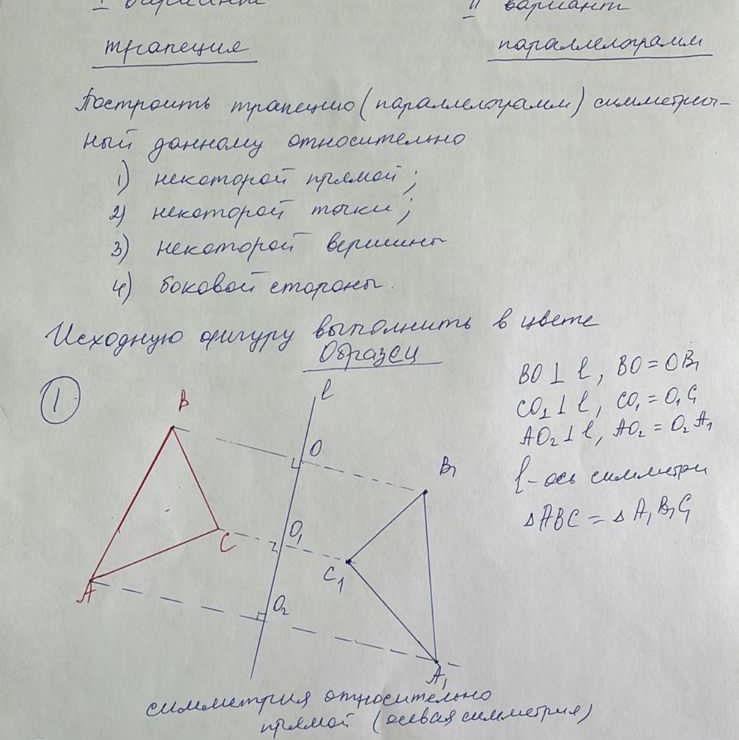 I вариант II вариант
трапеция параллелограмм
Построить трапецию (параллелограмм) симметрич-
ный данному относительно
1) некоторой прямой;
2) некоторой точки;
3) некоторой вершины
4) боковой стороны.
Исходную фигуру выполнить в цвете
Образец
1
B
l
O
B₁
C
O₁
C₁
A
O₂
A₁
BO ⊥ l, BO = OB₁
CO₁ ⊥ l, CO₁ = O₁C₁
AO₂ ⊥ l, AO₂ = O₂A₁
l - ось симметри
△ABC = △A₁B₁C₁
симметрия относительно
прямой (осевая симметрия)